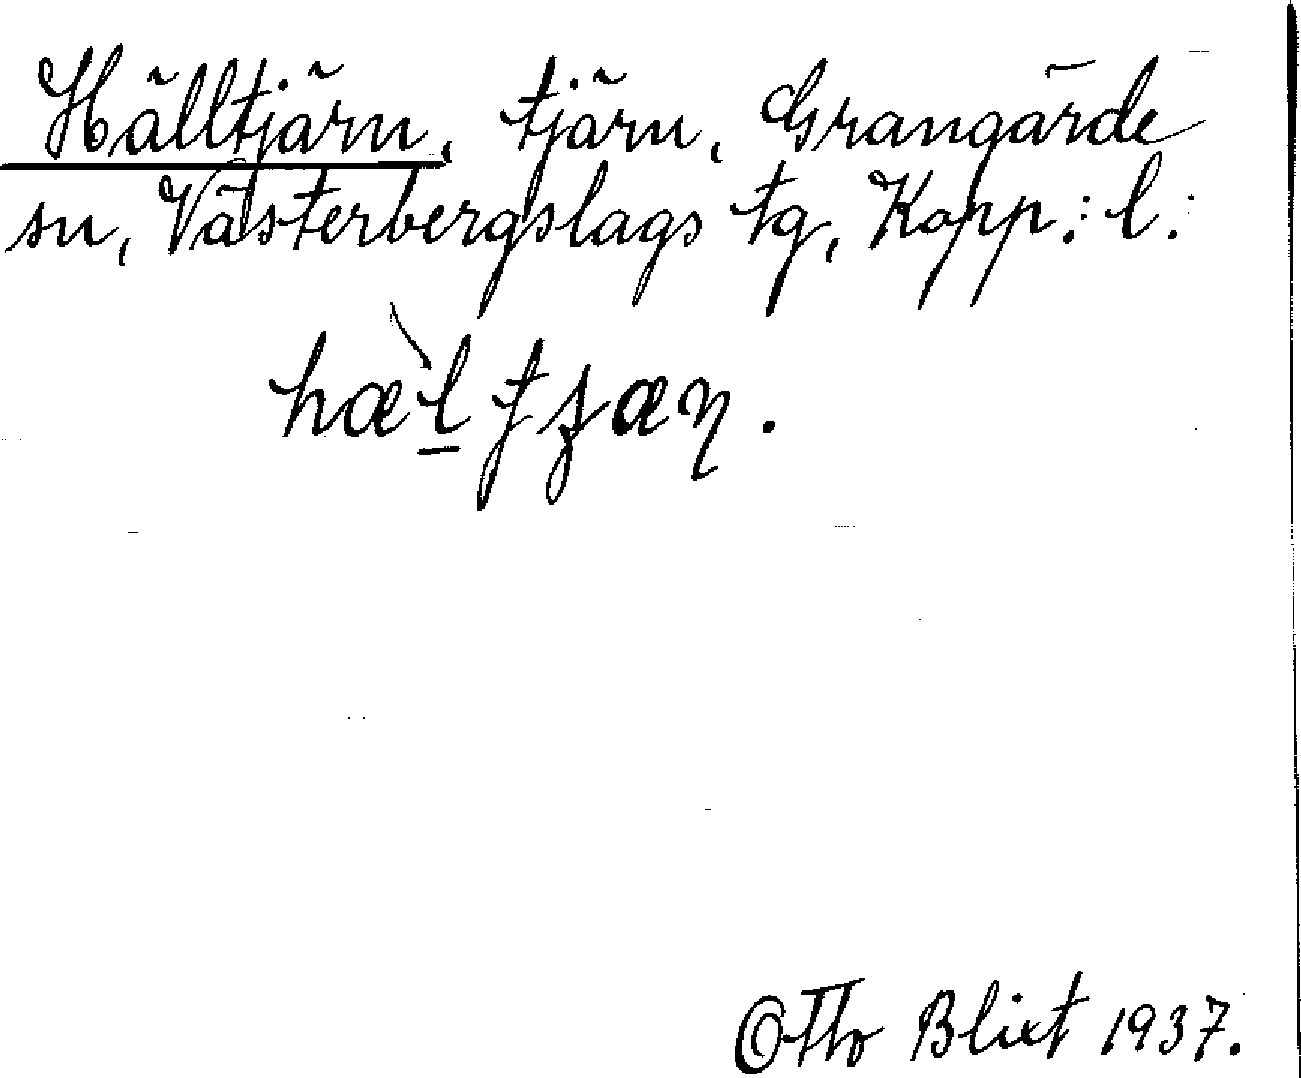 Hälltjärn, tjärn, Grangärde
sn, Västerbergslags tg, Kopp: l:
Otto Blixt 1937.